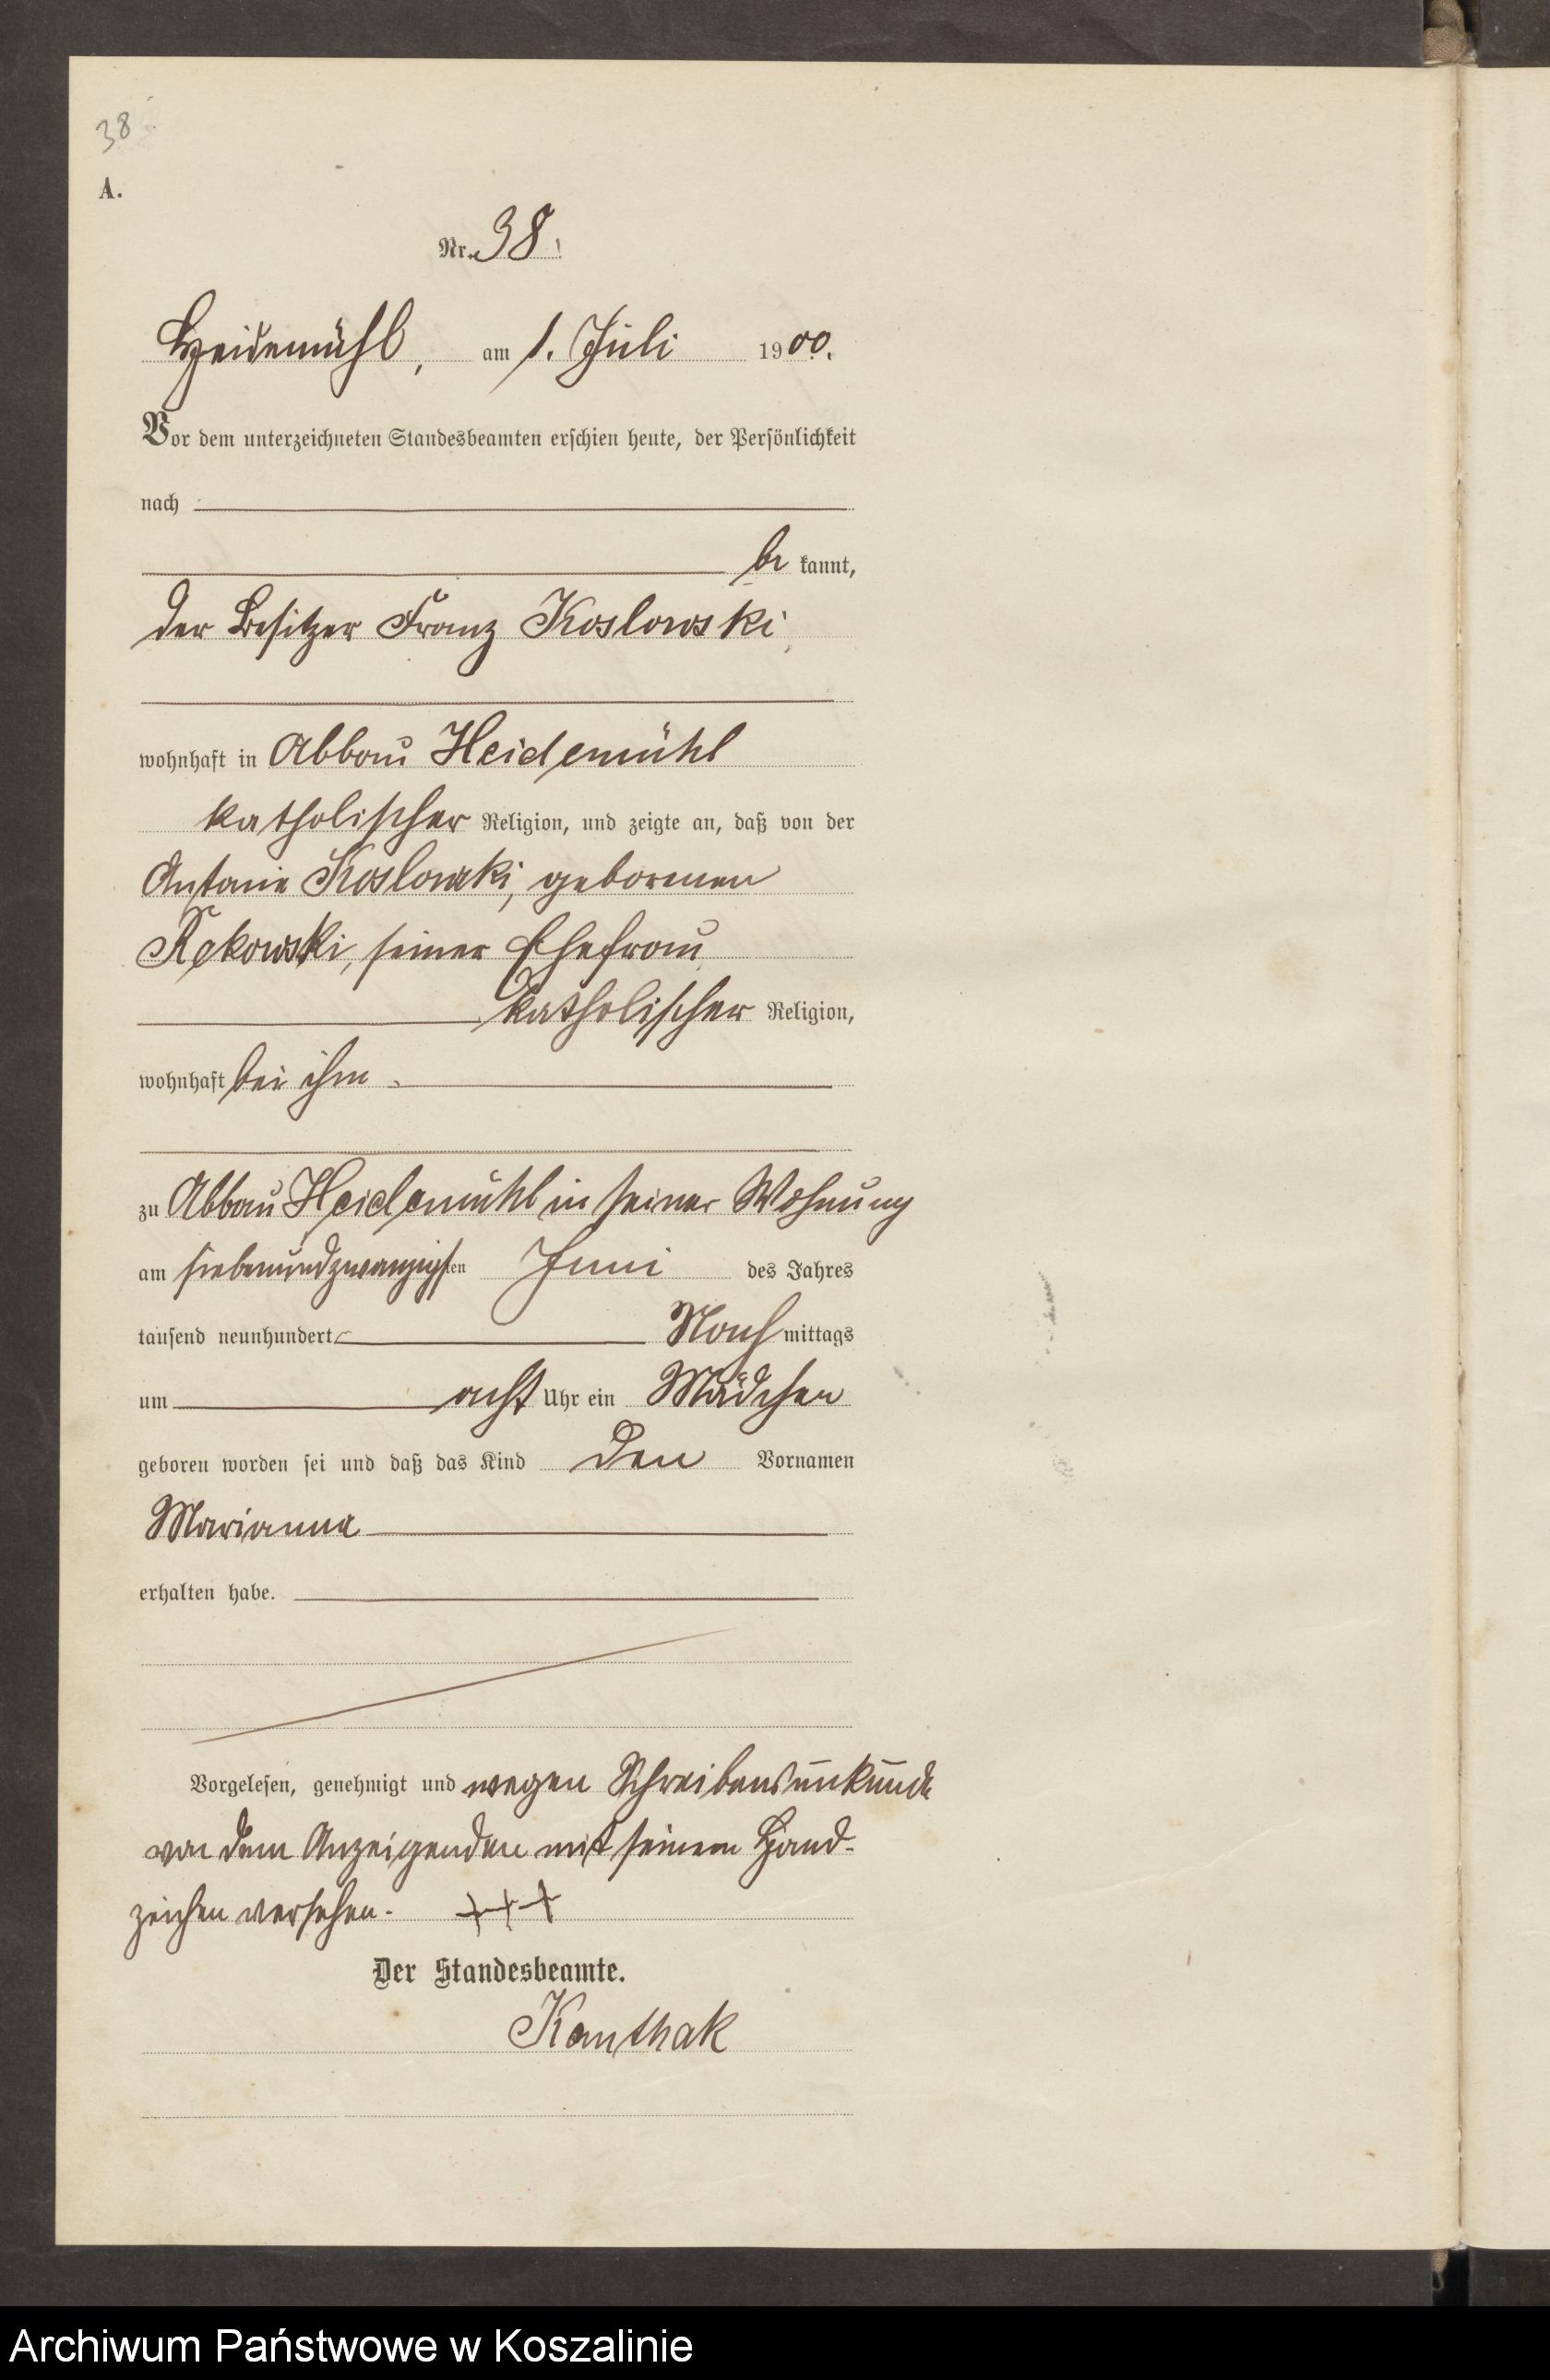 38
A.
Nr. 38.
Heidemühl, am 1. Juli 1900.
Vor dem unterzeichneten Standesbeamten erschien heute, der Persönlichkeit
nach
be kannt,
der Besitzer Franz Koslowski,
wohnhaft in Abbau Heidemühl
katholischer Religion, und zeigte an, daß von der
Antonie Koslowski, geborenen
Rekowski, seiner Ehefrau
katholischer Religion,
wohnhaft bei ihm
zu Abbau Heidemühl in seiner Wohnung
am siebenundzwanzigsten Juni des Jahres
tausend neunhundert Nach mittags
um acht Uhr ein Mädchen
geboren worden sei und daß das Kind den Vornamen
Marianna
erhalten habe.
Vorgelesen, genehmigt und wegen Schreibensunkunde
von dem Anzeigenden mit seinem Hand-
zeichen versehen. +++
Der Standesbeamte.
Kanthak
Archiwum Państwowe w Koszalinie